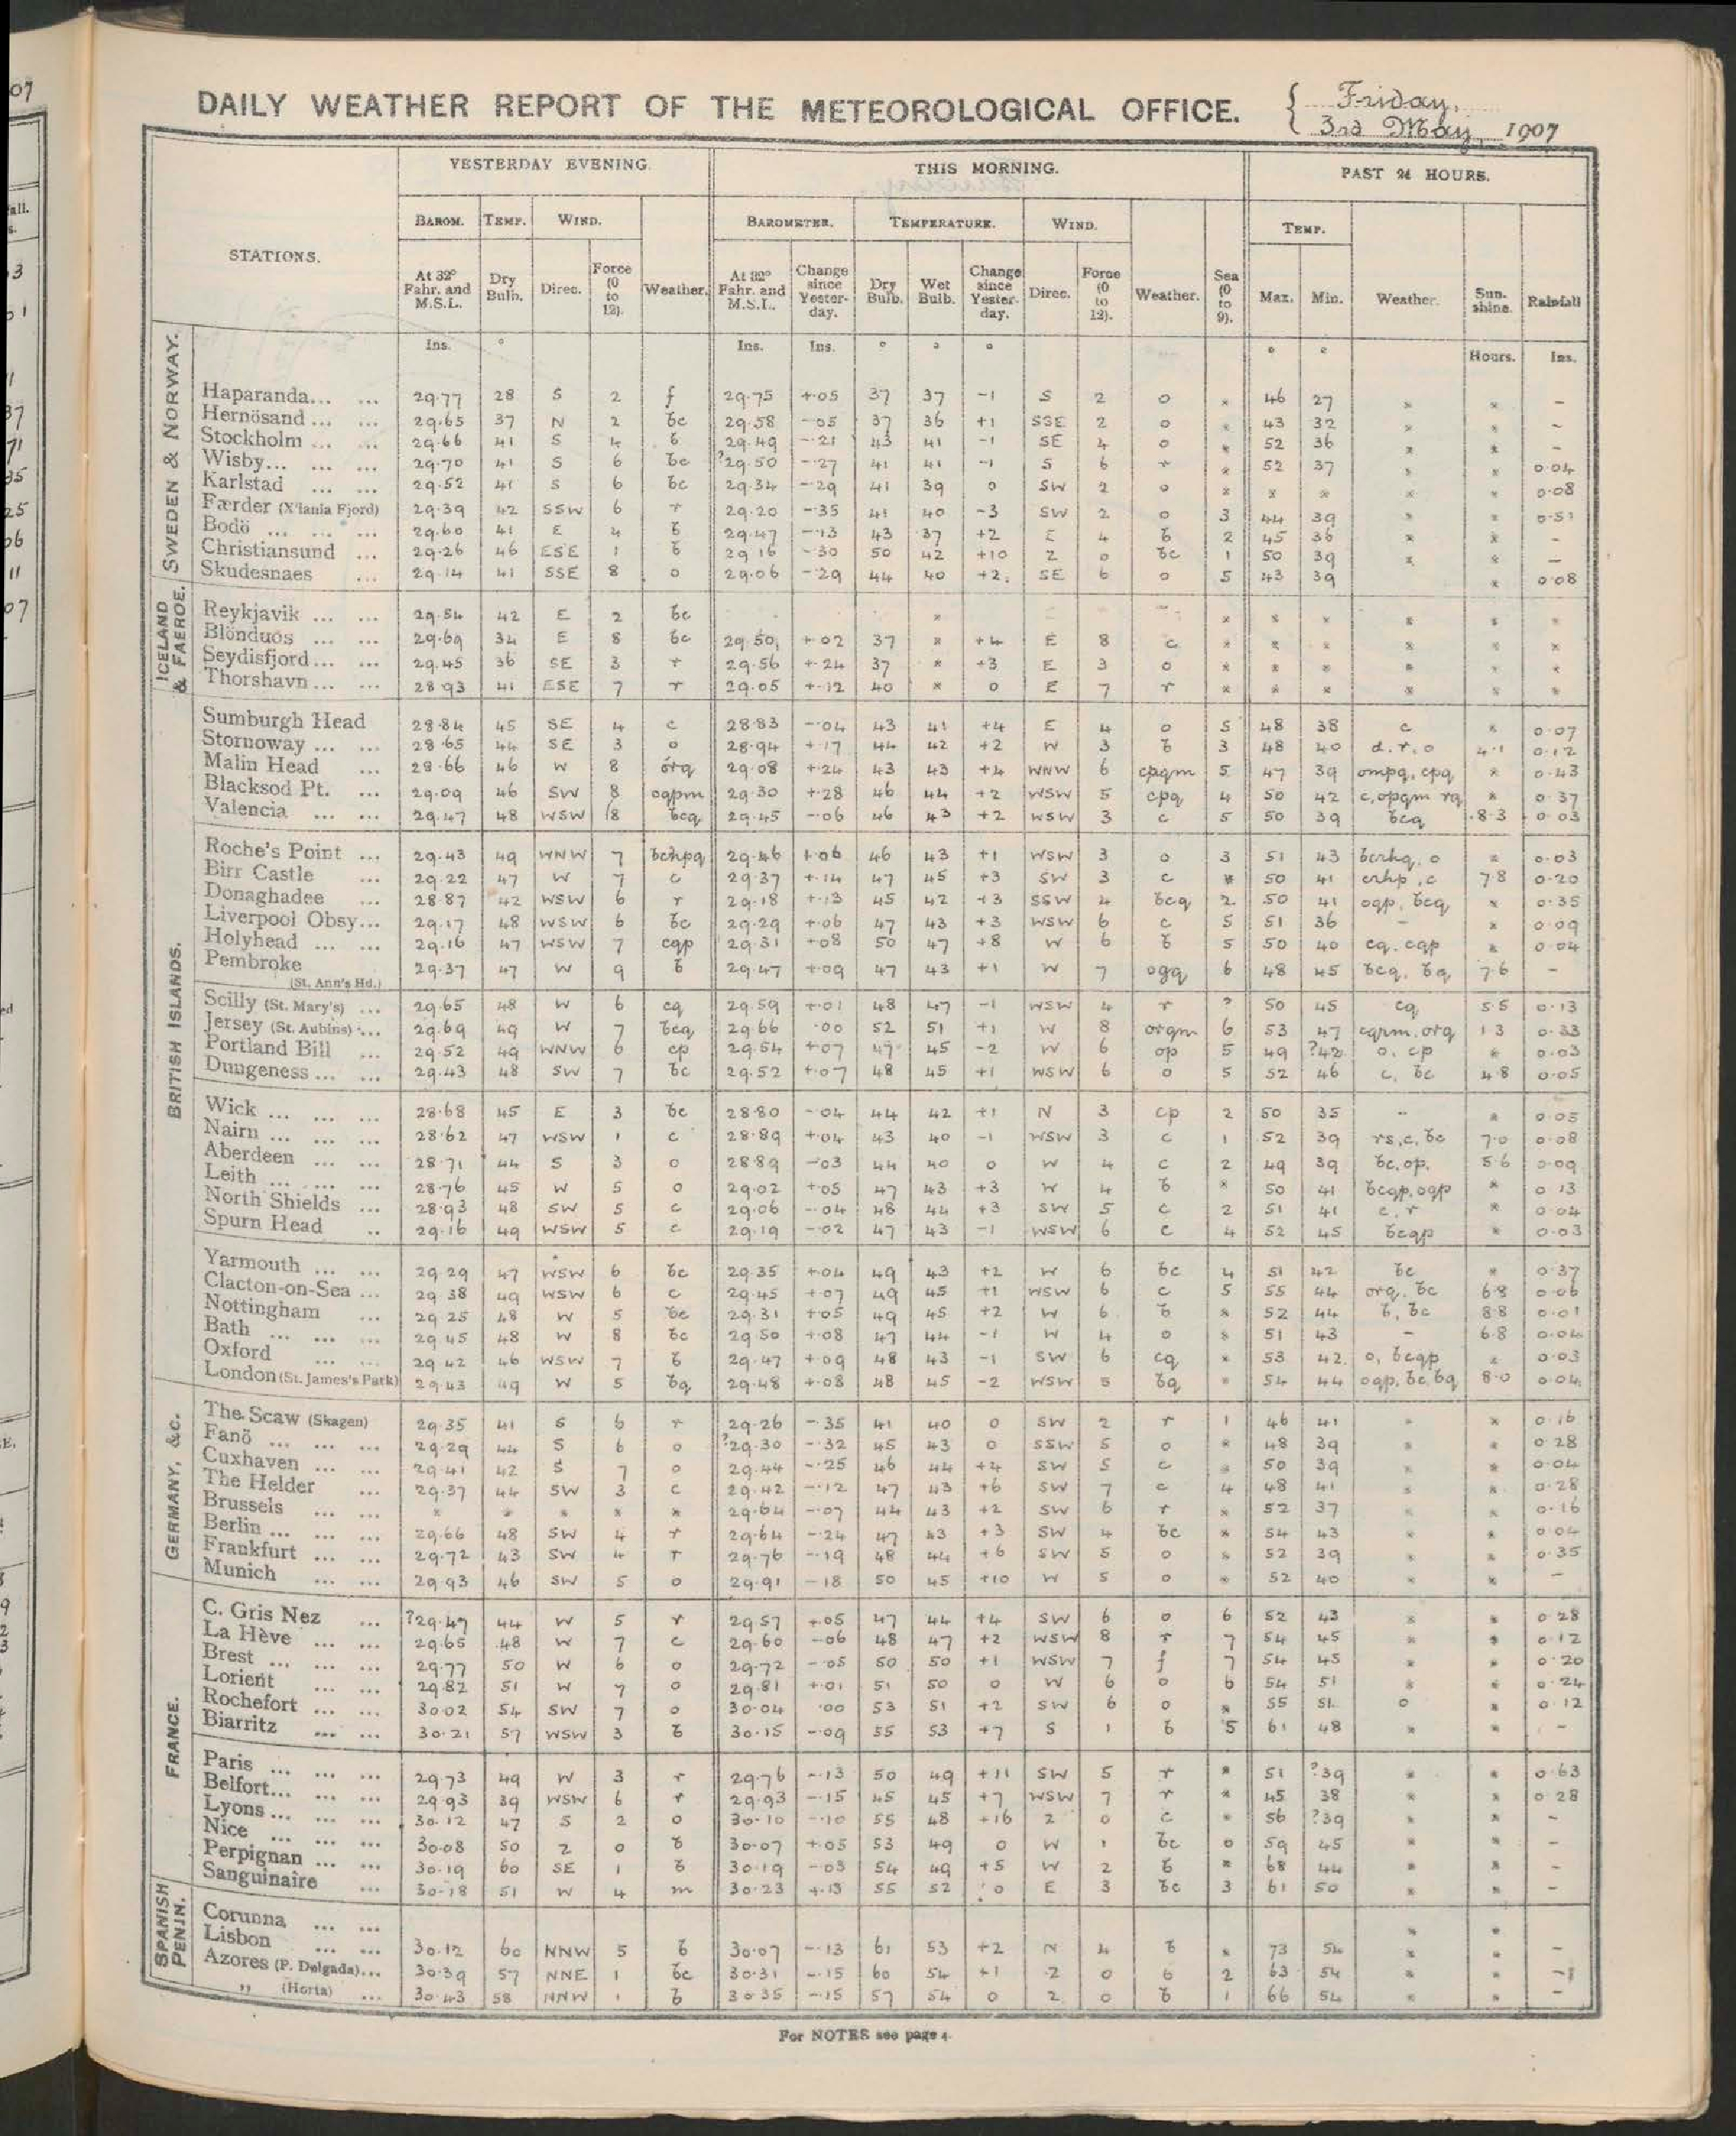 DAILY WEATHER REPORT OF THE METEOROLOGICAL OFFICE. { Friday, 3rd May, 1907
YESTERDAY EVENING. THIS MORNING. PAST 24 HOURS.
STATIONS. BAROM. TEMP. WIND. BAROMETER. TEMPERATURE. WIND. TEMP.
At 32° Fahr. and M.S.L. Dry Bulb. Direc. Force (0 to 12). Weather. At 32° Fahr. and M.S.L. Change since Yesterday. Dry Bulb. Wet Bulb. Change since Yesterday. Direc. Force (0 to 12). Weather. Sea (0 to 9). Max. Min. Weather. Sunshine. Rainfall
Ins. ° Ins. Ins. ° ° ° ° ° Hours. Ins.
SWEDEN & NORWAY.
Haparanda... ... 29.77 28 S 2 f 29.75 +.05 37 37 -1 S 2 o * 46 27 * * -
Hernösand ... ... 29.65 37 N 2 bc 29.58 -.05 37 36 +1 SSE 2 o * 43 32 * * -
Stockholm ... ... 29.66 41 S 4 b 29.49 -.21 43 41 -1 SE 4 o * 52 36 * * -
Wisby... ... ... 29.70 41 S 6 bc ?29.50 -.27 41 41 -1 S 6 r * 52 37 * * 0.04
Karlstad ... ... 29.52 41 S 6 bc 29.34 -.29 41 39 0 SW 2 o * * * * * 0.08
Færder (X'iania Fjord) 29.39 42 SSW 6 r 29.20 -.35 41 40 -3 SW 2 o 3 44 39 * * 0.51
Bodö ... ... ... 29.60 41 E 4 b 29.47 -.13 43 37 +2 E 4 b 2 45 36 * * -
Christiansund ... 29.26 46 ESE 1 b 29.16 -.30 50 42 +10 Z 0 bc 1 50 39 * * -
Skudesnaes ... 29.14 41 SSE 8 o 29.06 -.29 44 40 +2 SE 6 o 5 43 39 * 0.08
ICELAND & FAEROE.
Reykjavik ... ... 29.54 42 E 2 bc * * * * * * *
Blönduös ... ... 29.69 34 E 8 bc 29.50 +.02 37 * +4 E 8 c * * * * * *
Seydisfjord ... ... 29.45 36 SE 3 r 29.56 +.24 37 * +3 E 3 o * * * * * *
Thorshavn ... ... 28.93 41 ESE 7 r 29.05 +.12 40 * 0 E 7 r * * * * * *
BRITISH ISLANDS.
Sumburgh Head 28.84 45 SE 4 c 28.83 -.04 43 41 +4 E 4 o 5 48 38 c * 0.07
Stornoway ... ... 28.65 44 SE 3 o 28.94 +.17 44 42 +2 W 3 b 3 48 40 d.r.o 4.1 0.12
Malin Head ... 28.66 46 W 8 orq 29.08 +.24 43 43 +4 WNW 6 cpqm 5 47 39 ompq, cpq * 0.43
Blacksod Pt. ... 29.09 46 SW 8 oqpm 29.30 +.28 46 44 +2 WSW 5 cpq 4 50 42 c, opqm rq * 0.37
Valencia ... ... 29.47 48 WSW 8 bcq 29.45 -.06 46 43 +2 WSW 3 c 5 50 39 bcq 8.3 0.03
Roche's Point ... 29.43 49 WNW 7 bchpq 29.46 +.06 46 43 +1 WSW 3 o 3 51 43 bcrhq, o * 0.03
Birr Castle ... 29.22 47 W 7 c 29.37 +.14 47 45 +3 SW 3 c * 50 41 crhp, c 7.8 0.20
Donaghadee ... 28.87 42 WSW 6 r 29.18 +.13 45 42 +3 SSW 4 bcq 2 50 41 oqp, bcq * 0.35
Liverpool Obsy... 29.17 48 WSW 6 bc 29.29 +.06 47 43 +3 WSW 6 c 5 51 36 - * 0.09
Holyhead ... ... 29.16 47 WSW 7 cqp 29.31 +.08 50 47 +8 W 6 b 5 50 40 cq. cqp * 0.04
Pembroke (St. Ann's Hd.) 29.37 47 W 9 b 29.47 +.09 47 43 +1 W 7 ogq 6 48 45 bcq, bq 7.6 -
Scilly (St. Mary's) ... 29.65 48 W 6 cq 29.59 +.01 48 47 -1 WSW 4 r ? 50 45 cq 5.5 0.13
Jersey (St. Aubins) ... 29.69 49 W 7 bcq 29.66 .00 52 51 +1 W 8 orqm 6 53 47 cqrm, orq 1.3 0.33
Portland Bill ... 29.52 49 WNW 6 cp 29.54 +.07 47 45 -2 W 6 op 5 49 ?42 o, cp * 0.03
Dungeness ... ... 29.43 48 SW 7 bc 29.52 +.07 48 45 +1 WSW 6 o 5 52 46 c, bc 4.8 0.05
Wick ... ... ... 28.68 45 E 3 bc 28.80 -.04 44 42 +1 N 3 cp 2 50 35 - * 0.05
Nairn ... ... ... 28.62 47 WSW 1 c 28.89 +.04 43 40 -1 WSW 3 c 1 52 39 rs, c, bc 7.0 0.08
Aberdeen ... ... 28.71 44 S 3 o 28.89 -.03 44 40 0 W 4 c 2 49 39 bc, op. 5.6 0.09
Leith ... ... ... 28.76 45 W 5 o 29.02 +.05 47 43 +3 W 4 b * 50 41 bcqp, oqp * 0.13
North Shields ... 28.93 48 SW 5 c 29.06 -.04 48 44 +3 SW 5 c 2 51 41 c, r * 0.04
Spurn Head .. 29.16 49 WSW 5 c 29.19 -.02 47 43 -1 WSW 6 c 4 52 45 bcqp * 0.03
Yarmouth ... ... 29.29 47 WSW 6 bc 29.35 +.04 49 43 +2 W 6 bc 4 51 42 bc * 0.37
Clacton-on-Sea ... 29.38 49 WSW 6 c 29.45 +.07 49 45 +1 WSW 6 c 5 55 44 orq, bc 6.8 0.06
Nottingham ... 29.25 48 W 5 bc 29.31 +.05 49 45 +2 W 6 b * 52 44 b, bc 8.8 0.01
Bath ... ... ... 29.45 48 W 8 bc 29.50 +.08 47 44 -1 W 4 o * 51 43 - 6.8 0.04
Oxford ... ... 29.42 46 WSW 7 b 29.47 +.09 48 43 -1 SW 6 cq * 53 42 o, bcqp * 0.03
London (St. James's Park) 29.43 49 W 5 bq 29.48 +.08 48 45 -2 WSW 5 bq * 54 44 oqp, bc bq 8.0 0.04
GERMANY, &c.
The Scaw (Skagen) 29.35 41 S 6 r 29.26 -.35 41 40 0 SW 2 r 1 46 41 * * 0.16
Fanö ... ... ... 29.29 44 S 6 o ?29.30 -.32 45 43 0 SSW 5 o * 48 39 * * 0.28
Cuxhaven ... ... 29.41 42 S 7 o 29.44 -.25 46 44 +4 SW 5 c * 50 39 * * 0.04
The Helder ... 29.37 44 SW 3 c 29.42 -.12 47 43 +6 SW 7 c 4 48 41 * * 0.28
Brussels ... ... * * * * * 29.64 -.07 44 43 +2 SW 6 r * 52 37 * * 0.16
Berlin ... ... ... 29.66 48 SW 4 r 29.64 -.24 47 43 +3 SW 4 bc * 54 43 * * 0.04
Frankfurt ... ... 29.72 43 SW 4 r 29.76 -.19 48 44 +6 SW 5 o * 52 39 * * 0.35
Munich ... ... 29.93 46 SW 5 o 29.91 -.18 50 45 +10 W 5 o * 52 40 * * -
FRANCE.
C. Gris Nez ... ?29.47 44 W 5 r 29.57 +.05 47 44 +4 SW 6 o 6 52 43 * * 0.28
La Hève ... ... 29.65 48 W 7 c 29.60 -.06 48 47 +2 WSW 8 r 7 54 45 * * 0.12
Brest ... ... ... 29.77 50 W 6 o 29.72 -.05 50 50 +1 WSW 7 f 7 54 45 * * 0.20
Lorient ... ... 29.82 51 W 7 o 29.81 +.01 51 50 0 W 6 o 6 54 51 * * 0.24
Rochefort ... ... 30.02 54 SW 7 o 30.04 .00 53 51 +2 SW 6 o * 55 51 o * 0.12
Biarritz ... ... 30.21 57 WSW 3 b 30.15 -.09 55 53 +7 S 1 b 5 61 48 * * -
Paris ... ... ... 29.73 49 W 3 r 29.76 -.13 50 49 +11 SW 5 r * 51 ?39 * * 0.63
Belfort... ... ... 29.93 39 WSW 6 r 29.93 -.15 45 45 +7 WSW 7 r * 45 38 * * 0.28
Lyons ... ... ... 30.12 47 S 2 o 30.10 -.10 55 48 +16 Z 0 c * 56 ?39 * * -
Nice ... ... ... 30.08 50 Z 0 b 30.07 +.05 53 49 0 W 1 bc 0 59 45 * * -
Perpignan ... ... 30.19 60 SE 1 b 30.19 -.03 54 49 +5 W 2 b * 68 44 * * -
Sanguinaire ... 30.18 51 W 4 m 30.23 +.13 55 52 0 E 3 bc 3 61 50 * * -
SPANISH PENIN.
Corunna ... ... * *
Lisbon ... ... 30.12 60 NNW 5 b 30.07 -.13 61 53 +2 N 4 b * 73 54 * * -
Azores (P. Delgada)... 30.39 57 NNE 1 bc 30.31 -.15 60 54 +1 Z 0 b 2 63 54 * * -
" (Horta) ... 30.43 58 NNW 1 b 30.35 -.15 57 54 0 Z 0 b 1 66 54 * * -
For NOTES see page 4.